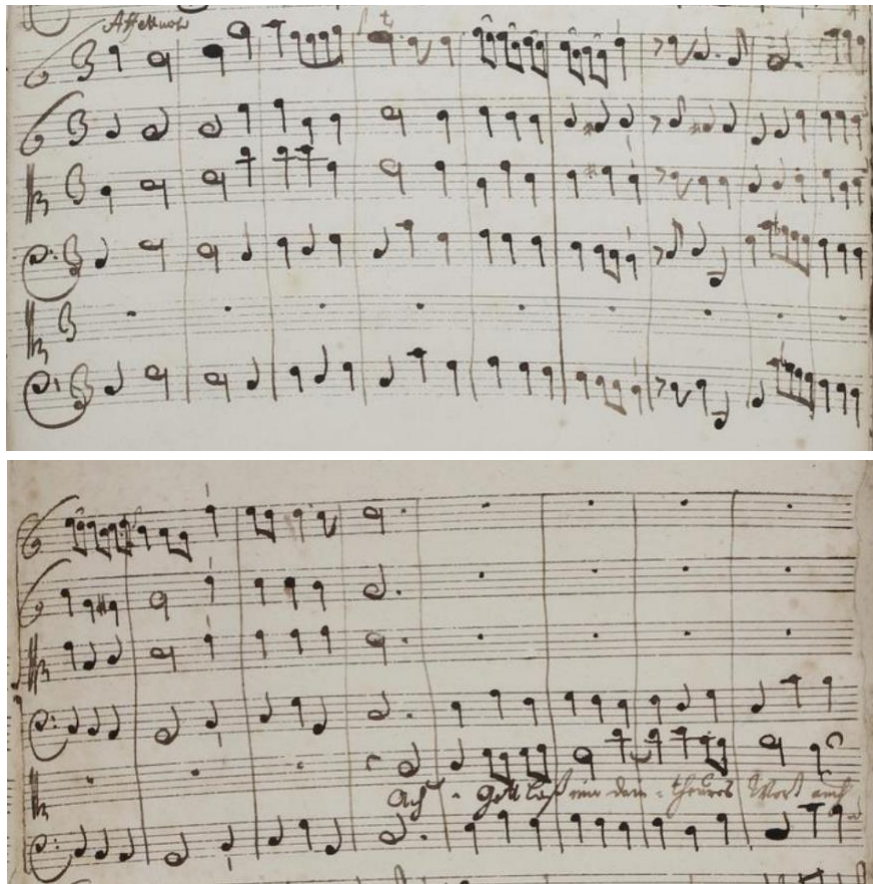 Affettuoso
t
Ach - Gott laß mir dein - theures Wort auch